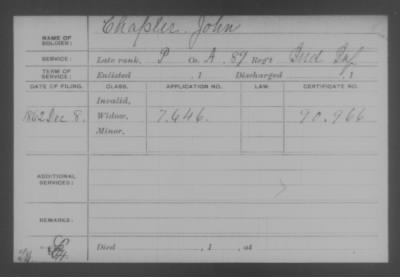 NAME OF SOLDIER: Chapler John
SERVICE: Late rank, P Co. A. 87 Reg't Ind Inf
TERM OF SERVICE: Enlisted , 1 Discharged , 1
DATE OF FILING. CLASS. APPLICATION NO. LAW. CERTIFICATE NO.
Invalid,
1862 Dec 8. Widow, 7.646. 90.966
Minor,
ADDITIONAL SERVICES:
REMARKS:
Died , 1 , at